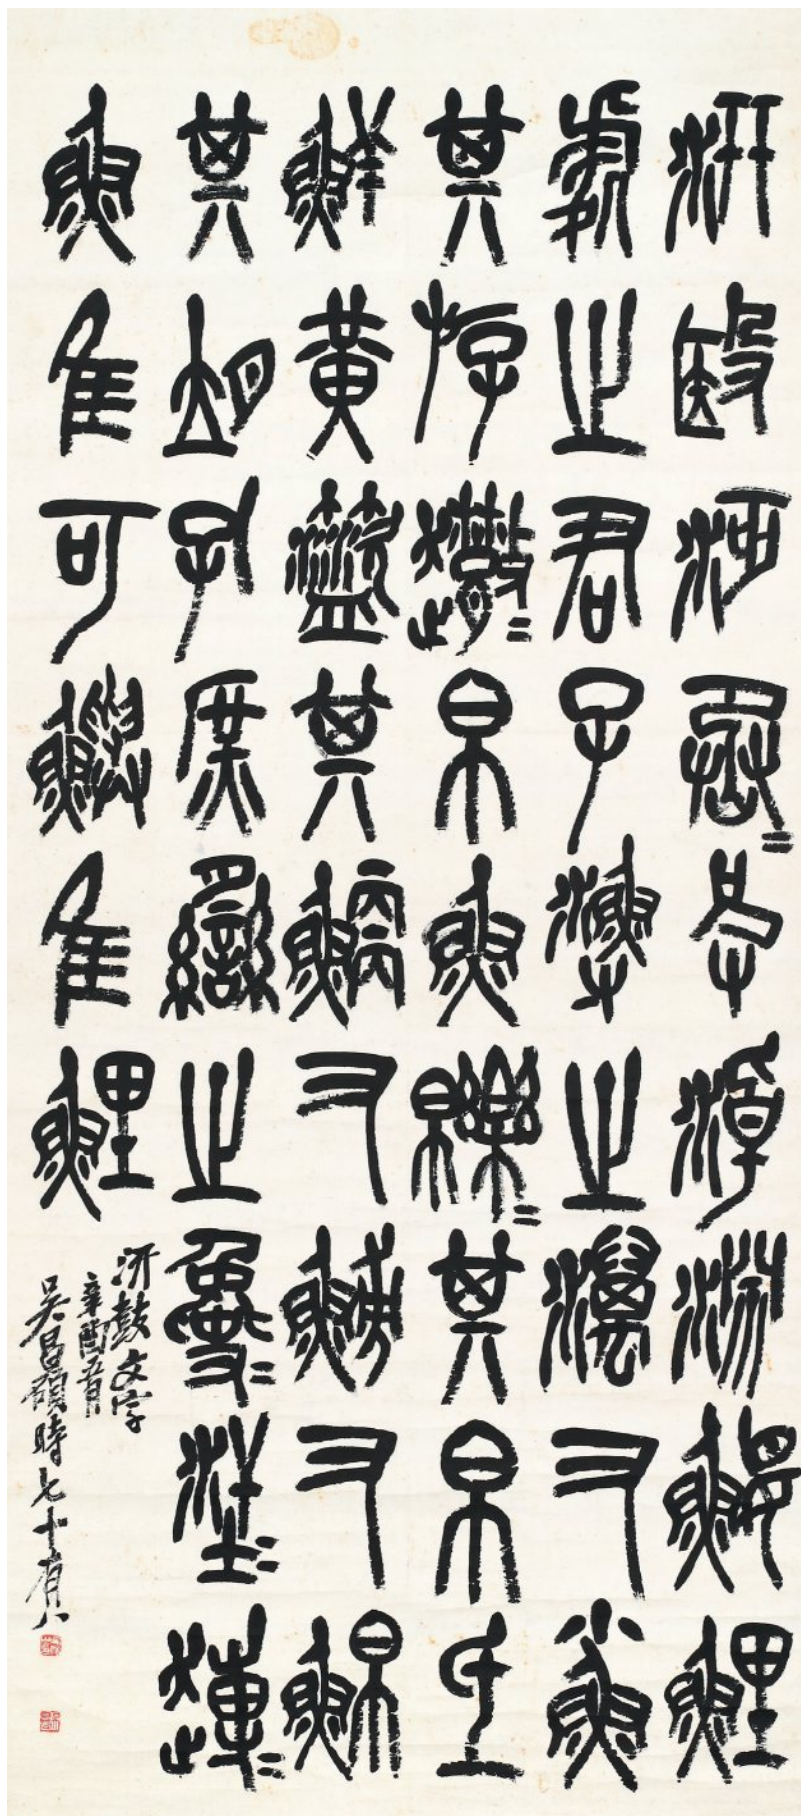 汧殹沔丞=皮淖淵鰋鯉
處之君子漁之澫又小魚
其斿帛魚皪=其帛氐
鮮黃其鯾又䱷又鮊
其孔庶臠之㚟=
魚隹可鱮隹鯉
汧鼓文字
辛酉五月
吳昌碩時七十有八